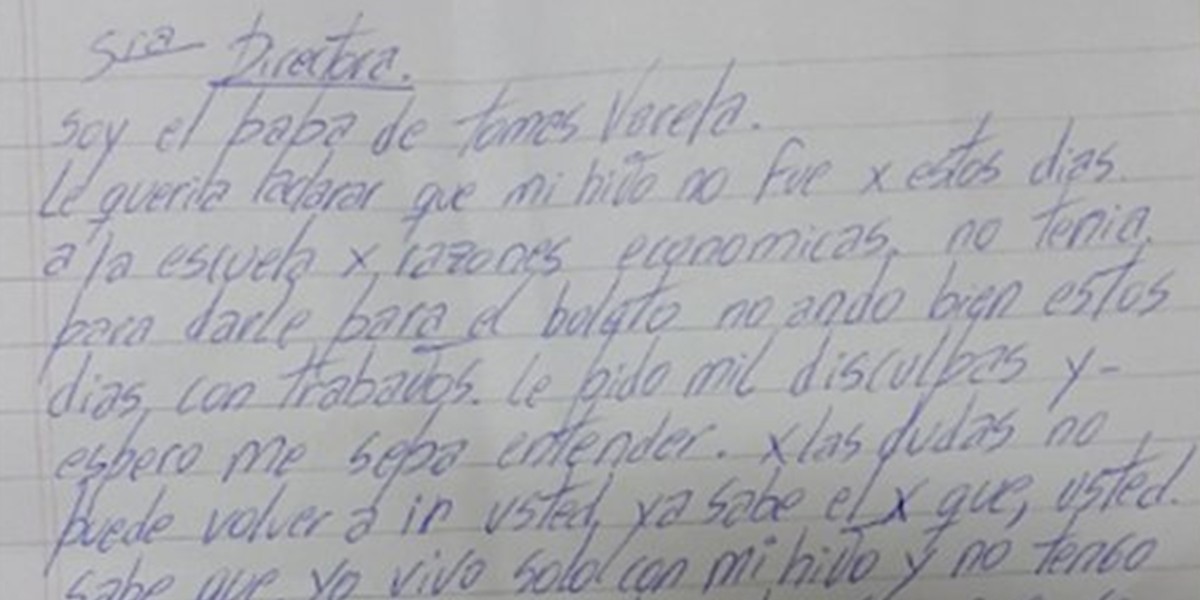 Sra Directora.
Soy el papa de Tomas Varela.
Le queria aclarar que mi hijo no fue x estos dias.
a la escuela x razones economicas, no tenia.
para darle para el boleto no ando bien estos
dias, con trabajos. Le pido mil disculpas y-
espero me sepa entender. x las dudas no
puede volver a ir usted, ya sabe el x que, usted.
sabe que yo vivo solo con mi hijo y no tengo